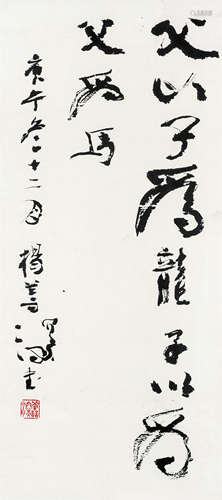 父以子為龍子以為
父為馬
庚午冬十二月楊善深書